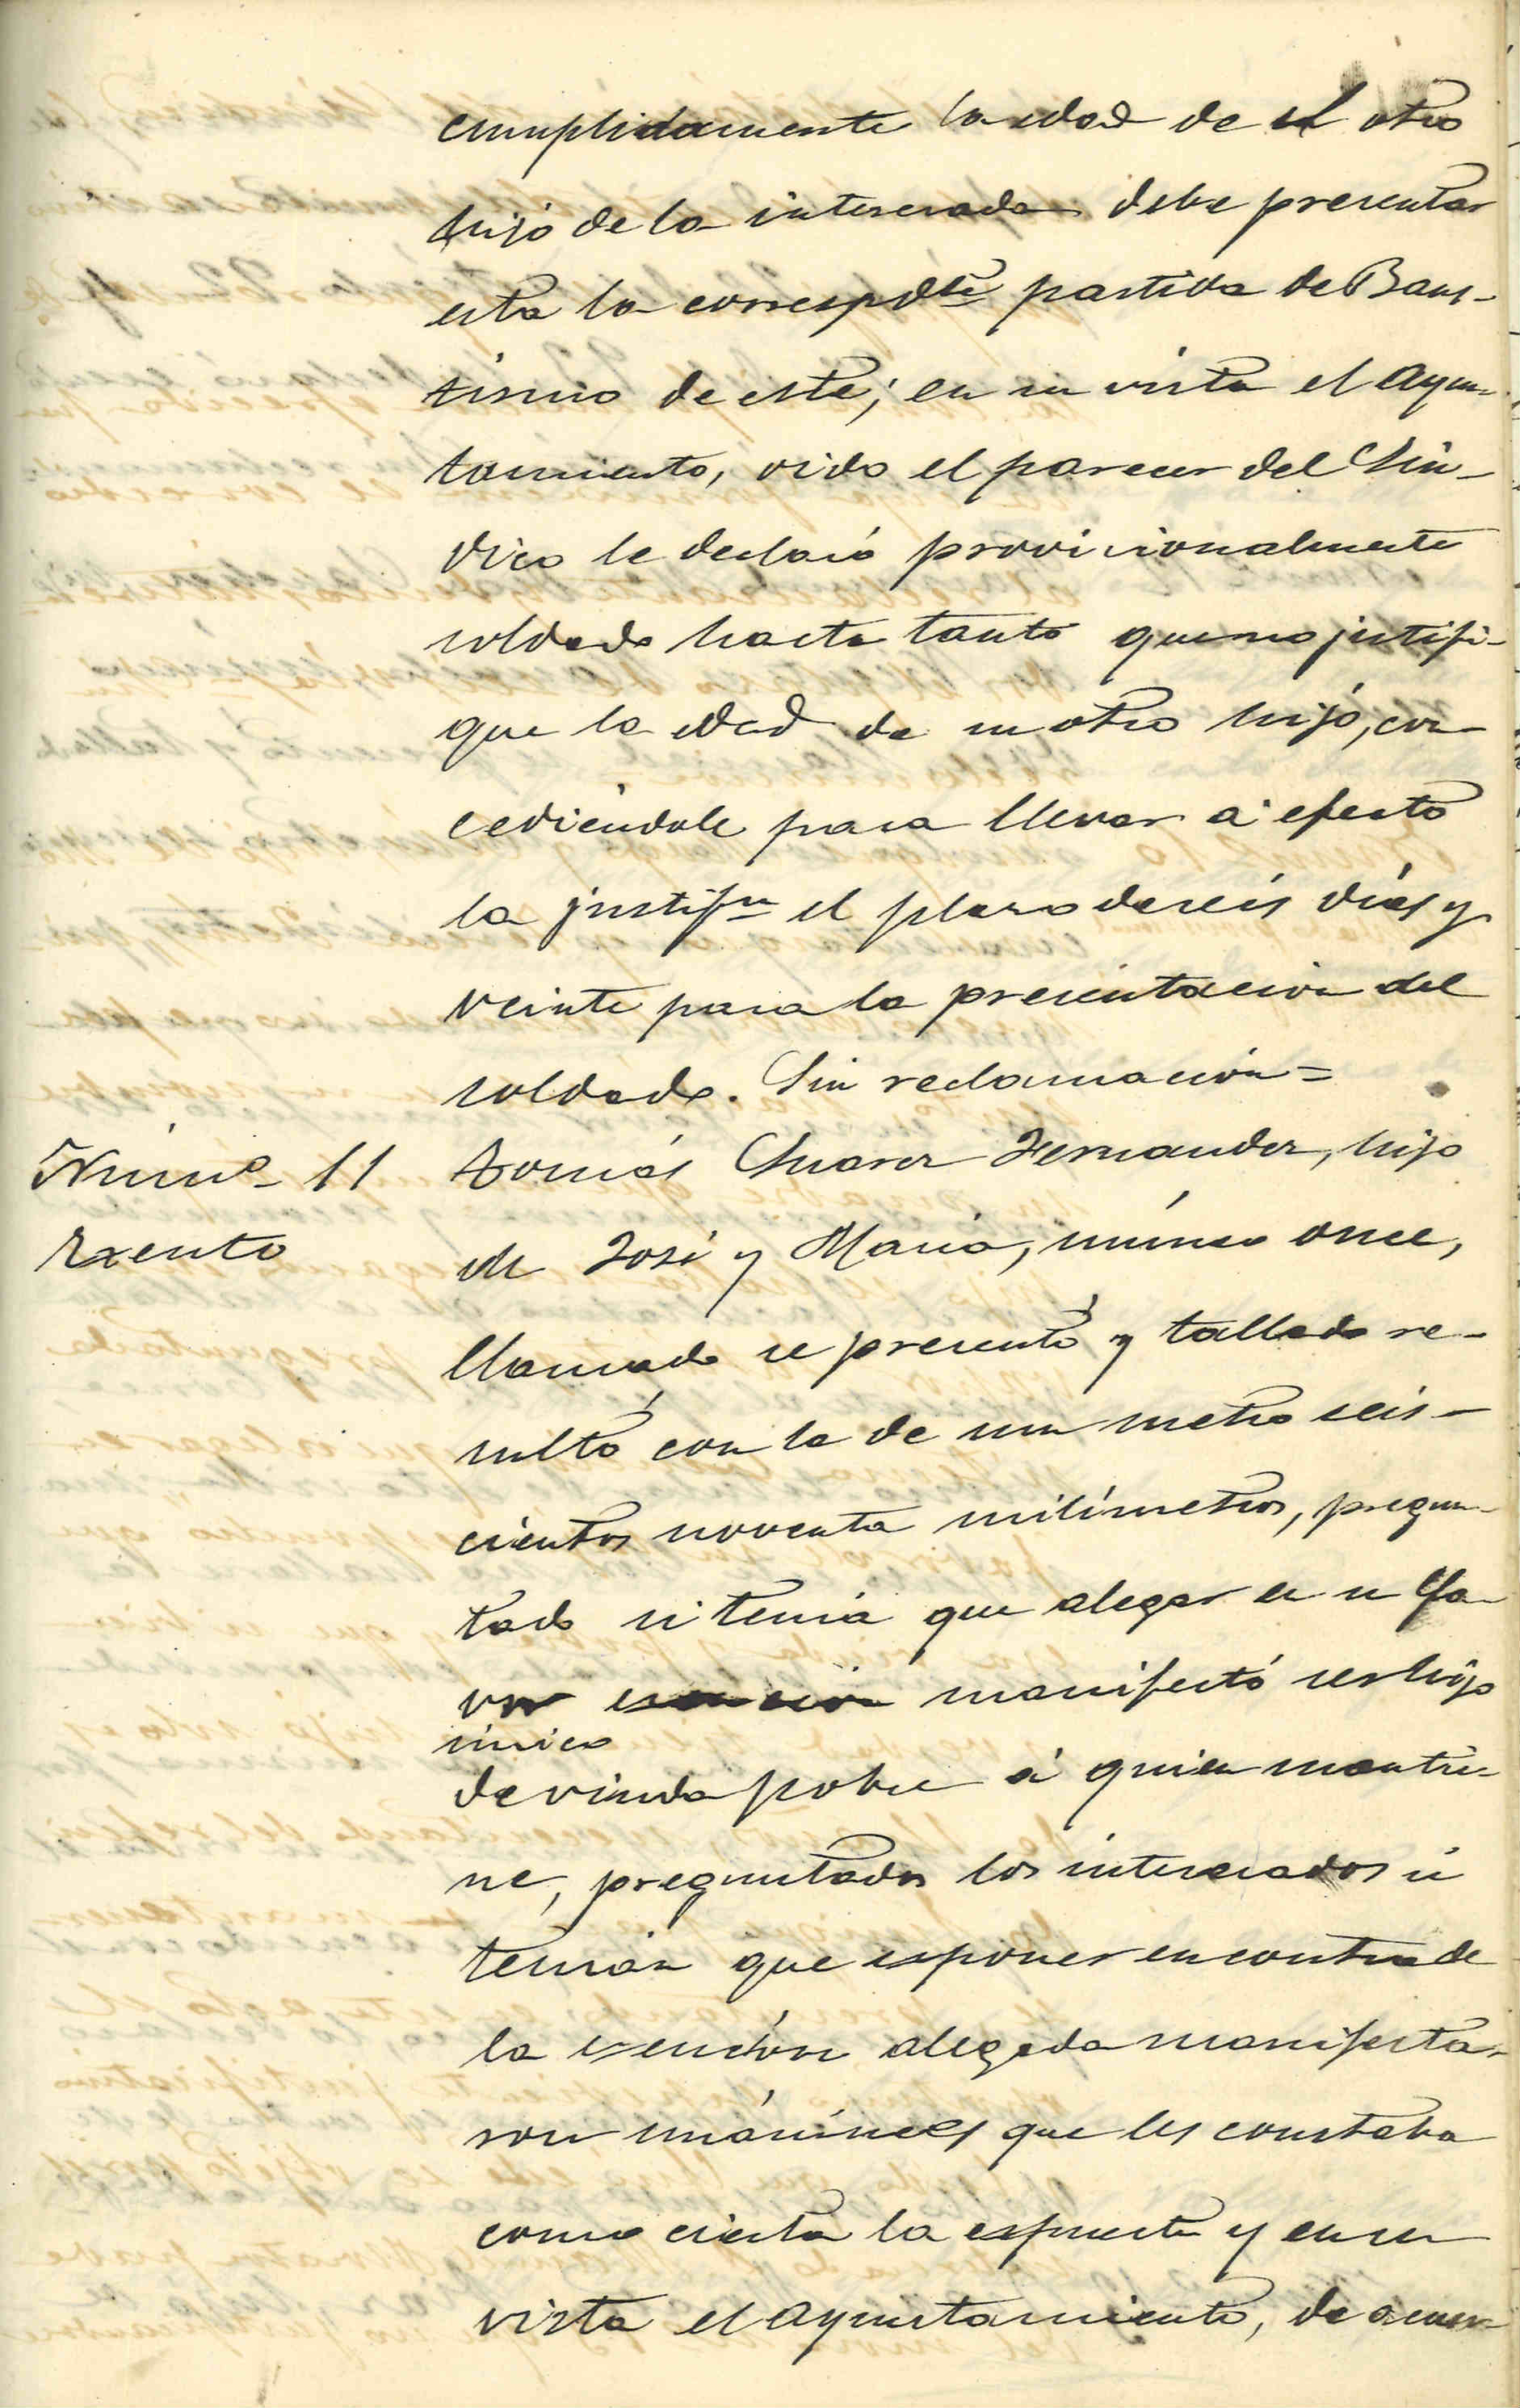 cumplidamente la edad de el otro
hijo de la interesada debe presentar
esta la correspdte partida de Baus-
tismo de este; en su vista el Ayun-
tamiento, oido el parecer del Sin-
dico le declaró provicionalmente
soldado hasta tanto que no justifi-
que la edad de su otro hijo, con-
cediéndole para llevar á efecto
la justifn el plazo de seis días y
veinte para la presentacion del
soldado. Sin reclamación=
Númo 11
Exento
Tomás Suarez Fernandez, hijo
de José y Maria, número once,
llamado se presentó y tallado re-
sultó con la de un metro seis-
cientos noventa milímetros, pregun-
tado si tenia que alegar en su fa-
vor manifestó ser hijo
único
de viuda pobre á quien mantie-
ne, preguntados los interesados si
tenian que esponer en contra de
la esención alegada manifesta-
ron unánimes que les constaba
como cierta la espuesta y en su
vista el Ayuntamiento, de acuer-